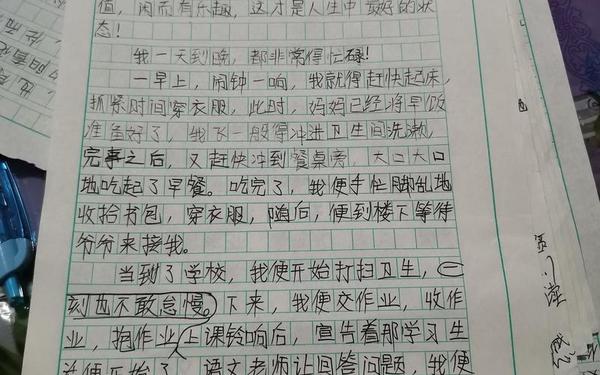 值，闲而有乐趣，这才是人生中最好的状
态！
我一天到晚，都非常得忙碌！
一早上，闹钟一响，我就得赶快起床，
抓紧时间穿衣服，此时，妈妈已经将早饭
准备好了，我飞一般得冲进卫生间洗漱，
完事之后，又赶快冲到餐桌旁，大口大口
地吃起了早餐。吃完了，我便手忙脚乱地
收拾书包，穿衣服，随后，便到楼下等待
爷爷来接我。
当到了学校，我便开始打扫卫生，一
刻也不敢怠慢。下来，我便交作业，收作
业，抱作业上课铃响后，宣告着那学习生
便开始了，语文老师让回答问题，我便